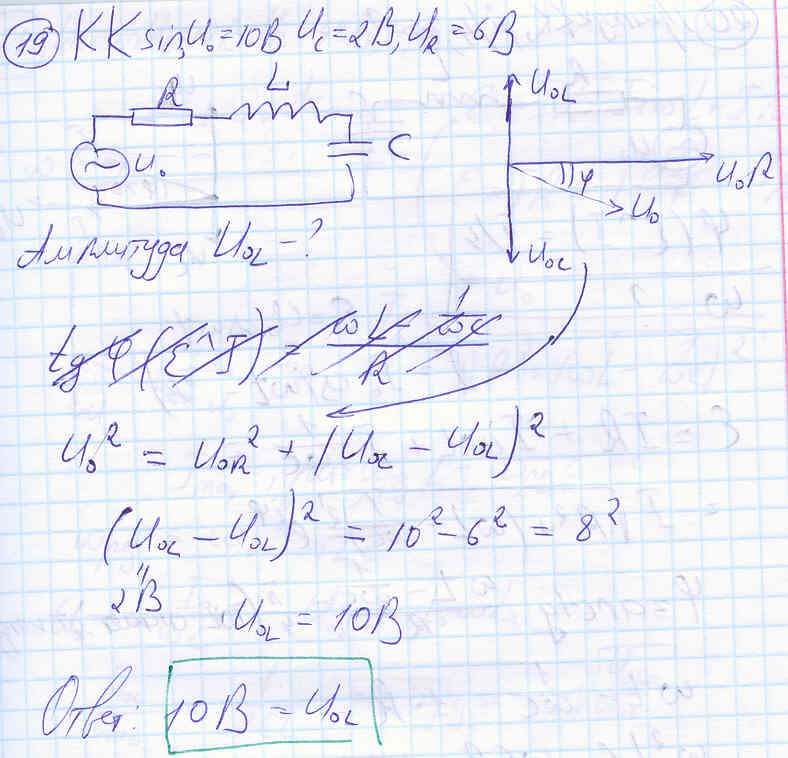 19 КК sin U₀=10В U_C=2В, U_R=6В
R L
U₀ C
U₀L
U₀R
φ
U₀
U₀C
Амплитуда U₀L - ?
tg φ (ε^I) = (ωL - 1/ωC)/R
U₀² = U₀R² + (U₀C - U₀L)²
(U₀C - U₀L)² = 10² - 6² = 8²
"
2В U₀L = 10В
Ответ: 10В = U₀L